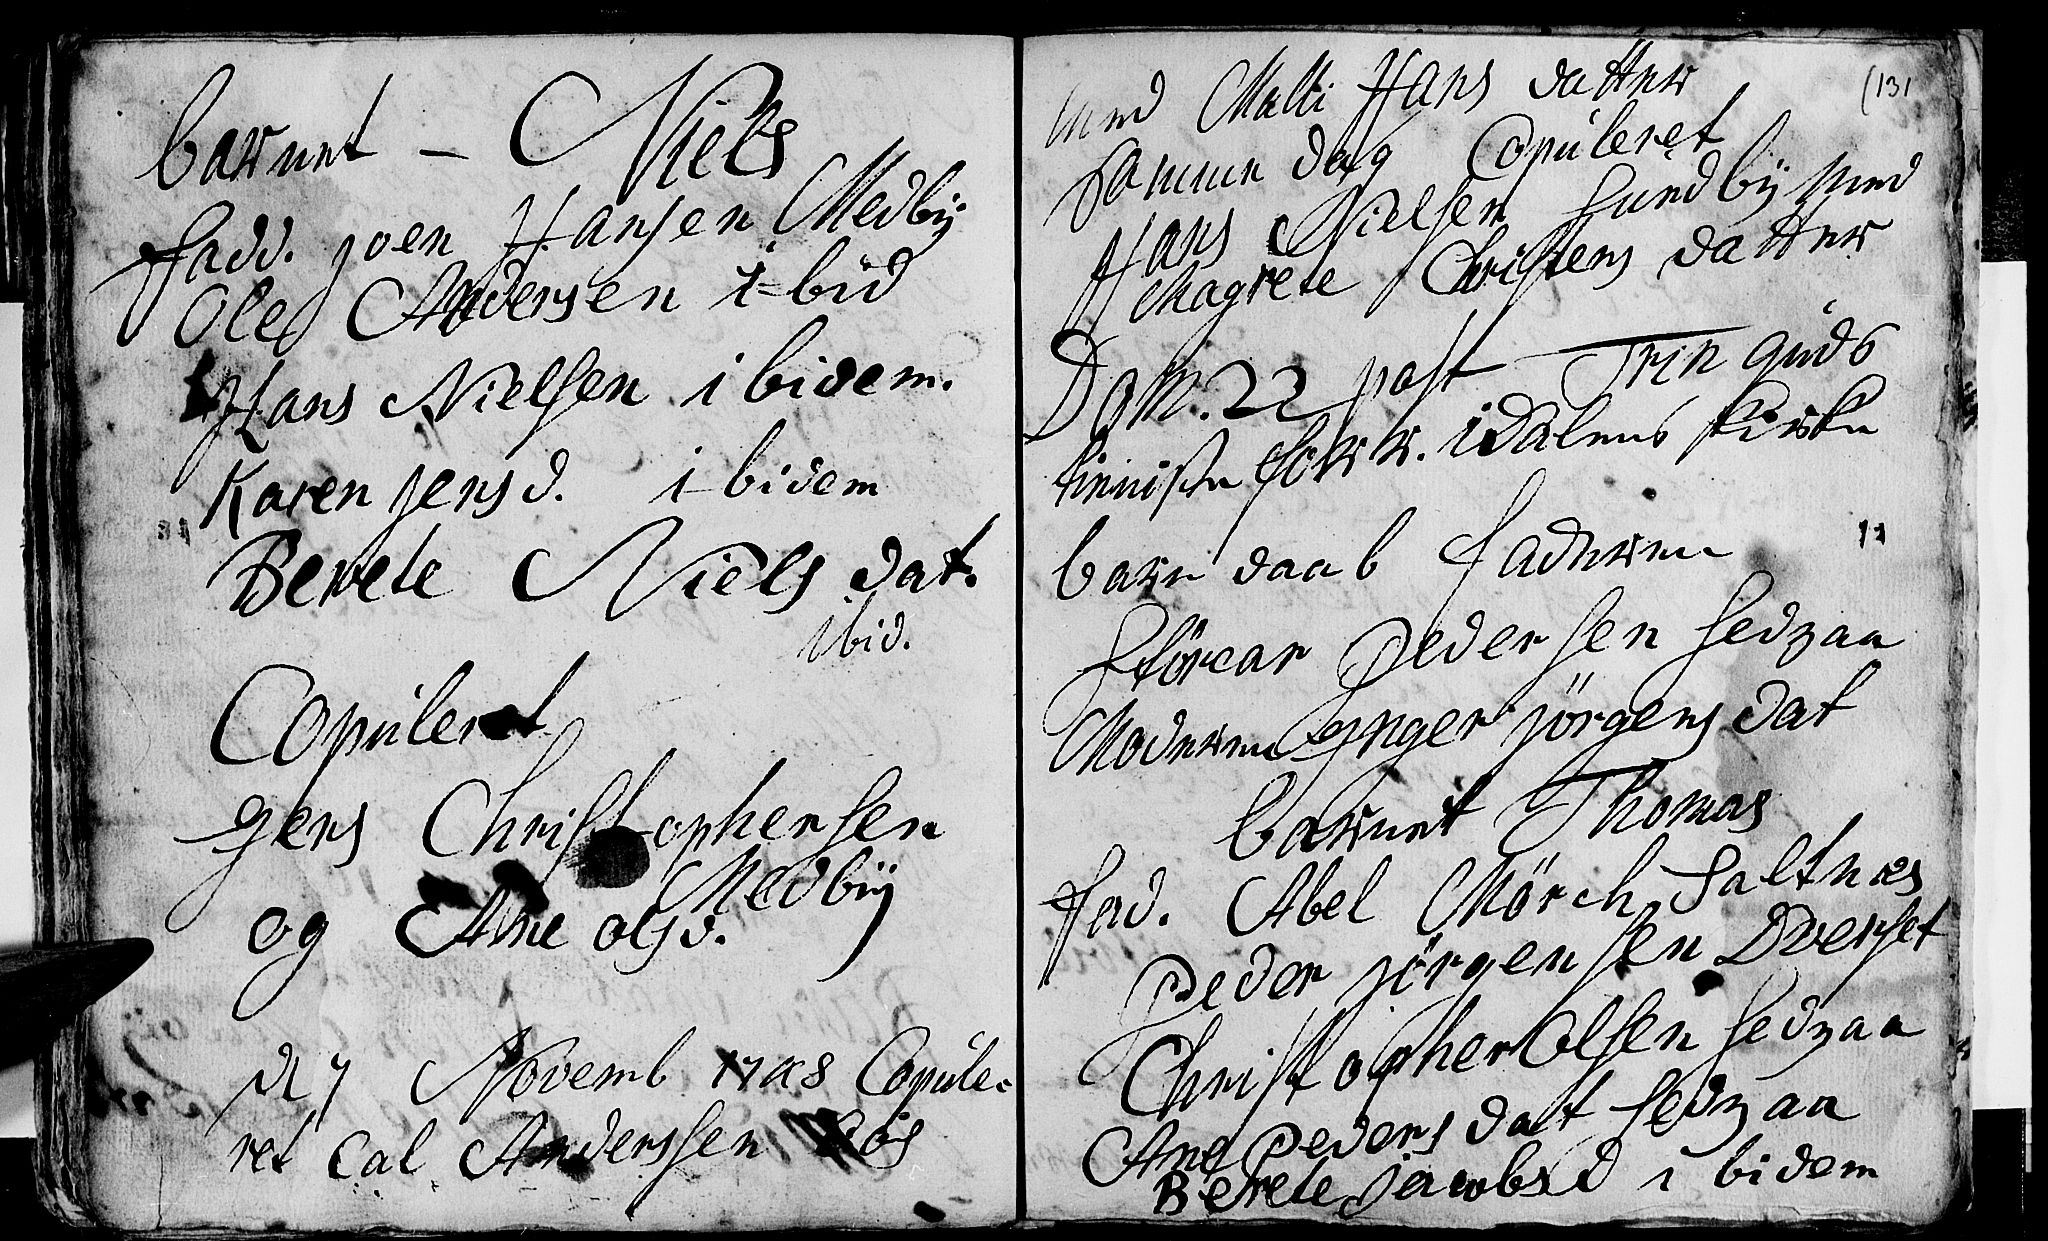 barnet - Niels
fadd. joen Hansen Medbÿ
Ole Andersen i-bid
Hans Nielsen ibidem.
Karen jens d. i-bidem
Berete Niels dat.
ibid.
Copuleret
Jens Christophersen
Medbÿ
og Ane ols d.
d 7 Novemb 1748 Copule-
ret Cal Anderssen
(131
med Malli Hans datter
samme dag Copuleret
Hans Nielsen sundbÿ med
Magrete Christens datter
Dom. 22 post Trin guds
tieniste forr. i Dalens kirke
11
barn daab faderen
Störcar pedersen sedzaa
Moderen Inger jörgens dat
barnet Thomas
fad. Abel Mörch saltnæs
Peder jörgensen Dverset
Christopher Olsen sedzaa
Ane peders dat sedzaa
Berete jacobs d ibidem